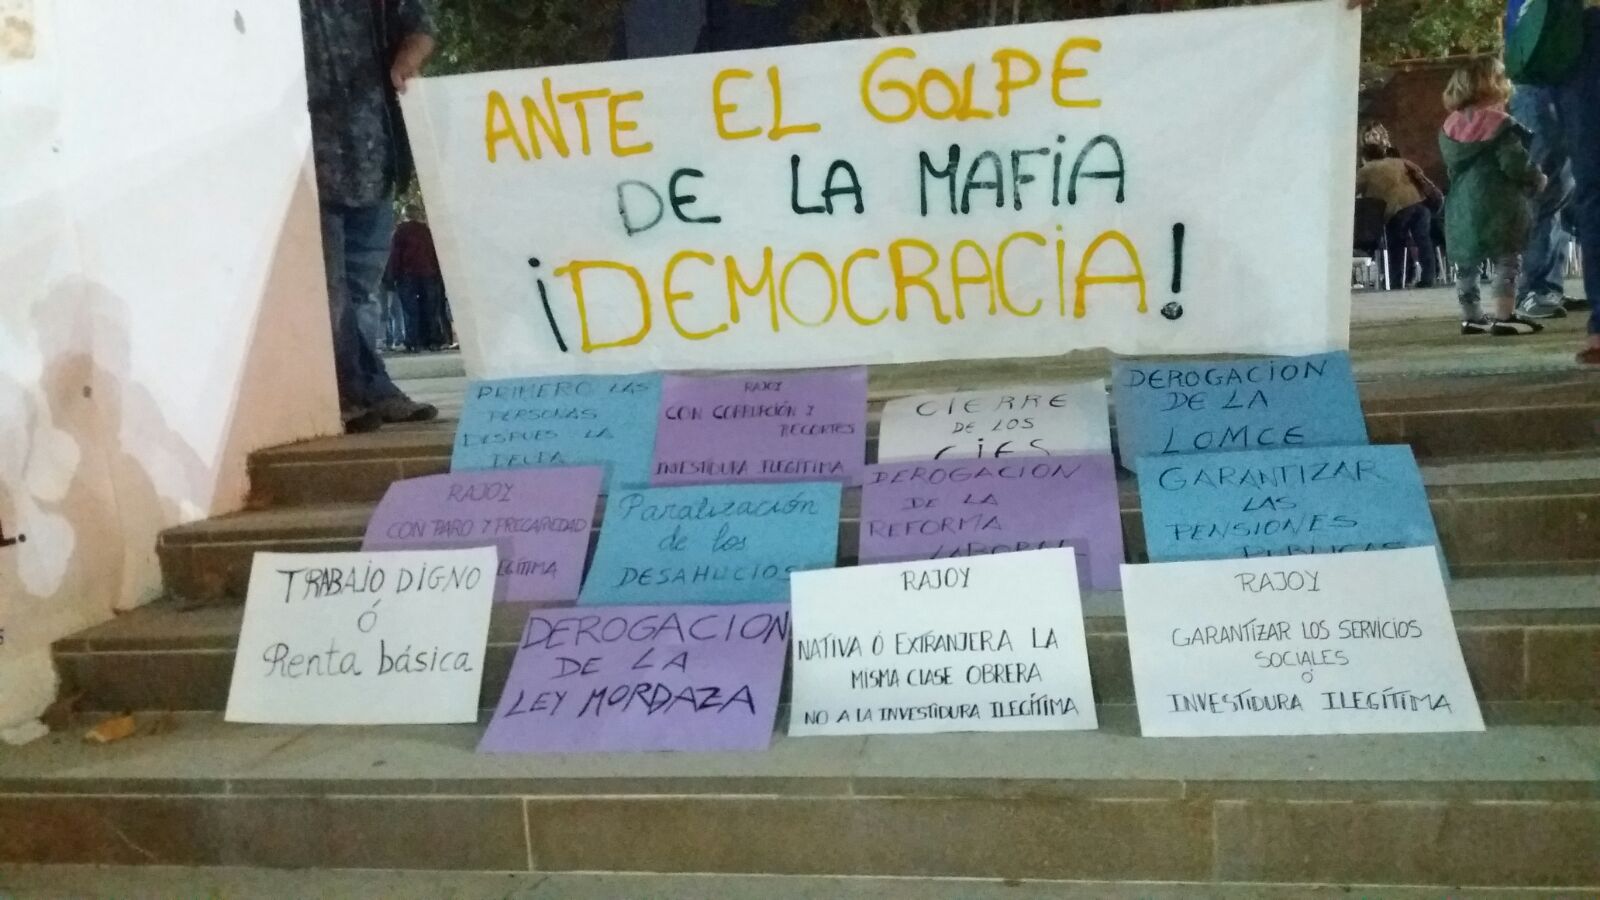 ANTE EL GOLPE
DE LA MAFIA
¡DEMOCRACIA!
PRIMERO LAS
PERSONAS
DESPUES LA
DEUDA
RAJOY
CON CORRUPCIÓN Y
RECORTES
INVESTIDURA ILEGÍTIMA
CIERRE
DE LOS
CIES
DEROGACION
DE LA
LOMCE
RAJOY
CON PARO Y PRECARIEDAD
EGÍTIMA
Paralización
de los
DESAHUCIOS
DEROGACION
DE LA
REFORMA
LABORAL
GARANTIZAR
LAS
PENSIONES
PUBLICAS
TRABAJO DIGNO
Ó
Renta básica
DEROGACION
DE LA
LEY MORDAZA
RAJOY
NATIVA Ó EXTRANJERA LA
MISMA CLASE OBRERA
NO A LA INVESTIDURA ILEGÍTIMA
RAJOY
GARANTIZAR LOS SERVICIOS
SOCIALES
Ó
INVESTIDURA ILEGÍTIMA